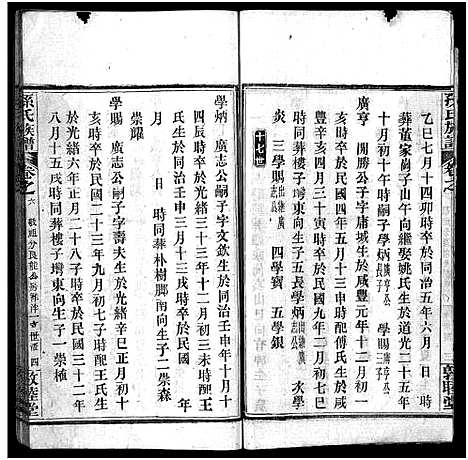 孫氏族譜
乙巳七月十四卯時卒於同治五年六月 日 時
葬董家崗子山午向繼娶姚氏生於道光二十五年
十月初十午時嗣子學炳廣亨公 學賜廣亨公
廣亨 開勝公子字庸城生於咸豐元年十二月初一
亥時卒於民國四年五月十三申時配傅氏生於
豐辛亥四月三十寅時卒於民國九年二月初三
時同葬樓子塆東向生子五長學炳 次學
炎 三學賜出繼廣志公 四學寶 五學銀
十七世
學炳 廣志公嗣子字文欽生於同治壬申年十月十
氏生於同治壬申三月十三戌時卒於民國
月 日 時同葬朴樹脚南向生子二崇森
崇耀
學賜 廣志公嗣子字壽夫生於光緒辛巳正月初十
亥時卒於民國二十三年九月初七子時配王氏生
於光緒六年正月二十八子時卒於民國三十二年
八月十五戌時同葬樓子塆東向生子一崇極
孫氏族譜
卷之六
四
敦睦堂